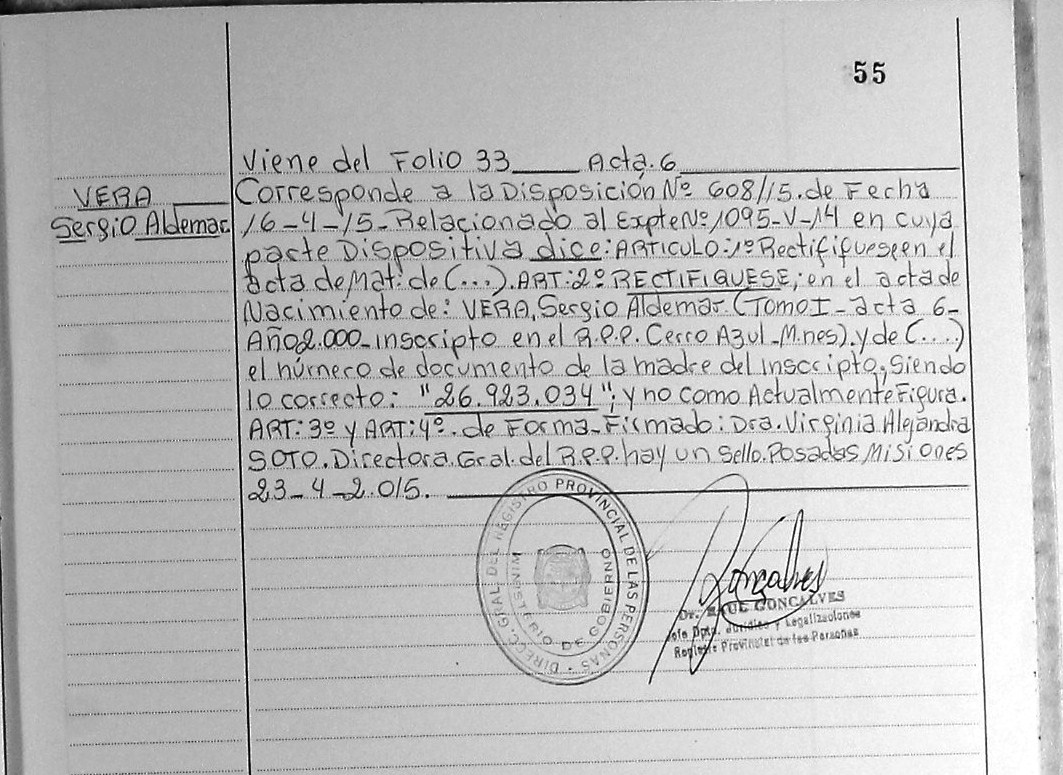 55
Viene del Folio 33 Acta. 6
VERA
Sergio Aldemar
Corresponde a la Disposición Nº 608/15. de Fecha
16-4-15- Relacionado al Expte Nº 1095-V-14 en cuya
parte Dispositiva dice: ARTICULO: 1º Rectifiquese en el
acta de Mat: de (...). ART: 2º RECTIFIQUESE; en el acta de
Nacimiento de: VERA, Sergio Aldemar. (Tomo I- acta 6-
Año 2.000- inscripto en el R.P.P. Cerro Azul- Mnes). y de (....)
el número de documento de la madre del inscripto, siendo
lo correcto: "26.923.034"; y no como Actualmente Figura.
ART: 3º y ART: 4º. de Forma- Firmado: Dra. Virginia Alejandra
SOTO. Directora. Gral. del R.P.P. hay un Sello. Posadas Misiones
23-4-2.015.
DIREC. GRAL. DEL REGISTRO PROVINCIAL DE LAS PERSONAS
MINISTERIO DE GOBIERNO
Gonçalves
Dr. RAUL GONCALVES
Jefe Dpto. Jurídico y Legalizaciones
Registro Provincial de las Personas